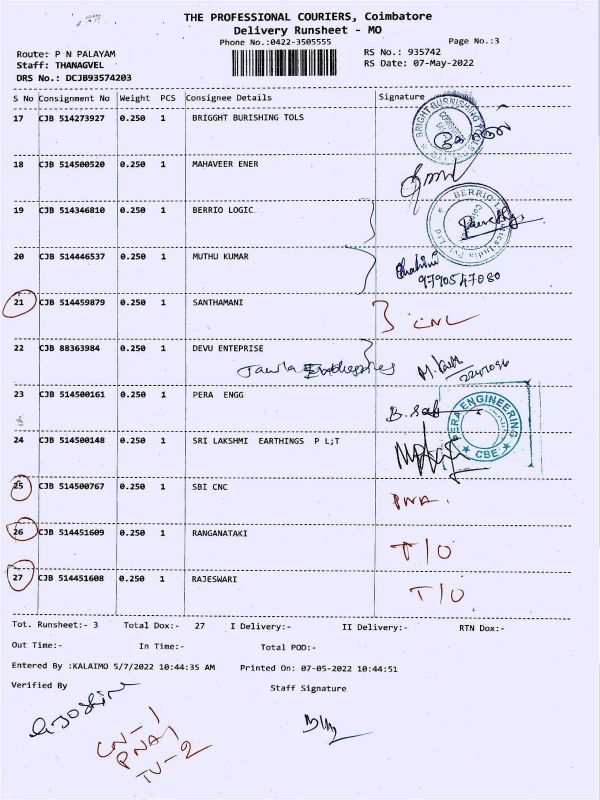 THE PROFESSIONAL COURIERS, Coimbatore
Delivery Runsheet - MO
Phone No.:0422-3505555
Page No.:3
Route: P N PALAYAM
RS No.: 935742
Staff: THANAGVEL
RS Date: 07-May-2022
DRS No.: DCJB93574203
S No Consignment No Weight PCS Consignee Details Signature
17 CJB 514273927 0.250 1 BRIGGHT BURISHING TOLS
18 CJB 514500520 0.250 1 MAHAVEER ENER
19 CJB 514346810 0.250 1 BERRIO LOGIC
20 CJB 514446537 0.250 1 MUTHU KUMAR
9790547080
21 CJB 514459879 0.250 1 SANTHAMANI
CNL
22 CJB 88363984 0.250 1 DEVU ENTEPRISE
23 CJB 514500161 0.250 1 PERA ENGG
PERA ENGINEERING
CBE
24 CJB 514500148 0.250 1 SRI LAKSHMI EARTHINGS P L;T
25 CJB 514500767 0.250 1 SBI CNC
PNA
26 CJB 514451609 0.250 1 RANGANATAKI
T/O
27 CJB 514451608 0.250 1 RAJESWARI
T/O
Tot. Runsheet:- 3 Total Dox:- 27 I Delivery:- II Delivery:- RTN Dox:-
Out Time:- In Time:- Total POD:-
Entered By :KALAIMO 5/7/2022 10:44:35 AM Printed On: 07-05-2022 10:44:51
Verified By Staff Signature
CN-1
PNA-1